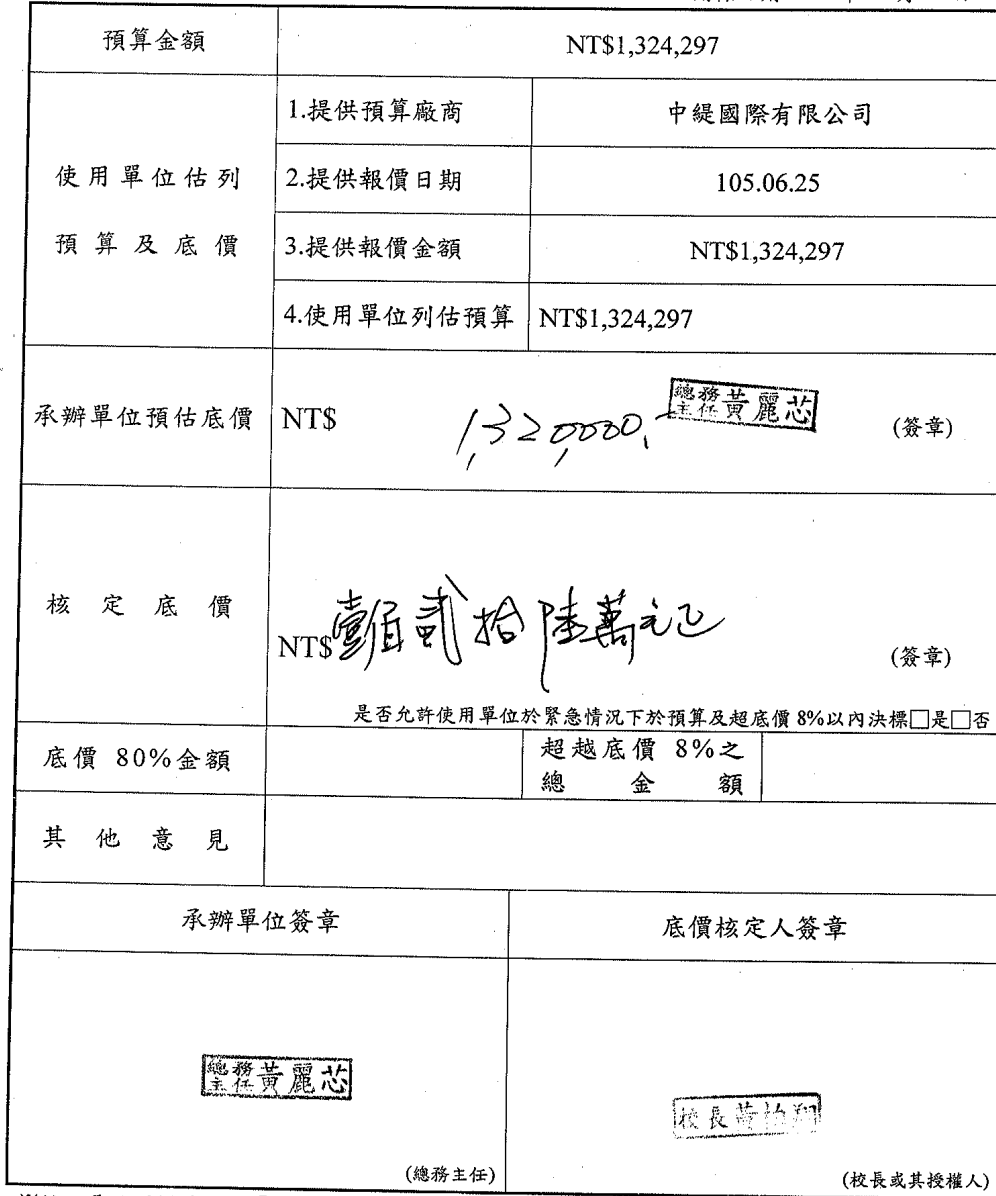 預算金額 NT$1,324,297
使用單位估列
預算及底價
1.提供預算廠商 中緹國際有限公司
2.提供報價日期 105.06.25
3.提供報價金額 NT$1,324,297
4.使用單位列估預算 NT$1,324,297
承辦單位預估底價 NT$ 1,320,000. 總務主任 黃麗芯 (簽章)
核定底價 NT$ 壹佰貳拾陸萬元正 (簽章)
是否允許使用單位於緊急情況下於預算及超底價8%以內決標□是□否
底價 80%金額
超越底價 8%之
總金額
其他意見
承辦單位簽章 底價核定人簽章
總務主任 黃麗芯
校長
(總務主任) (校長或其授權人)